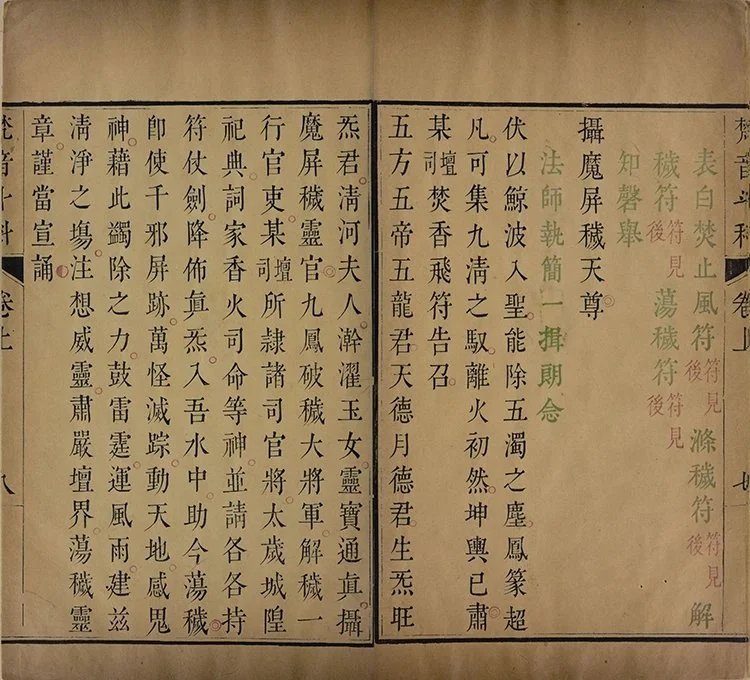 梵音斗科 卷上 七
表白焚止風符符見後 滌穢符符見後 解
穢符符見後 蕩穢符符見後
知磬舉
攝魔屏穢天尊
法師執簡一揖朗念
伏以鯨波入聖能除五濁之塵鳳篆超
凡可集九淸之馭離火初然坤輿已肅
某壇司焚香飛符告召
五方五帝五龍君天德月德君生炁旺
炁君淸河夫人澣濯玉女靈寶通眞攝
魔屏穢靈官九鳳破穢大將軍解穢一
行官吏某壇司所隸諸司官將太歲城隍
祀典詞家香火司命等神並請各各持
符仗劍降佈眞炁入吾水中助今蕩穢
卽使千邪屏跡萬怪滅踪動天地感鬼
神藉此蠲除之力鼓雷霆運風雨建兹
淸淨之塲注想威靈肅嚴壇界蕩穢靈
章謹當宣誦
梵音斗科 卷上 八